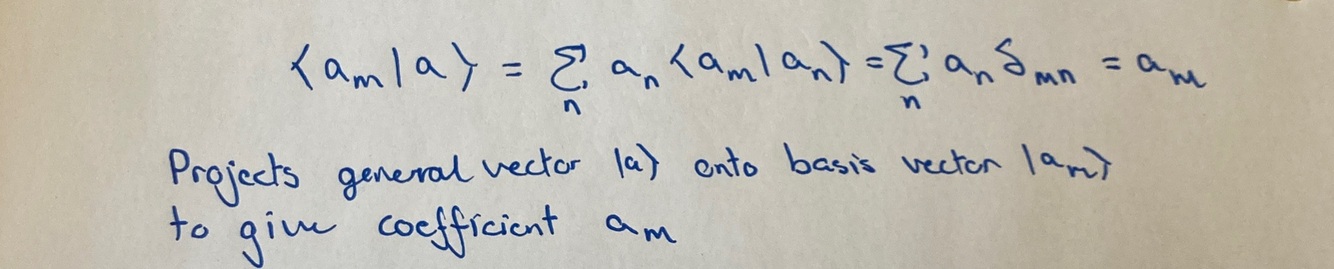 ⟨aₘ|a⟩ = Σₙ aₙ⟨aₘ|aₙ⟩ = Σₙ aₙ δₘₙ = aₘ
Projects general vector |a⟩ onto basis vector |aₘ⟩
to give coefficient aₘ